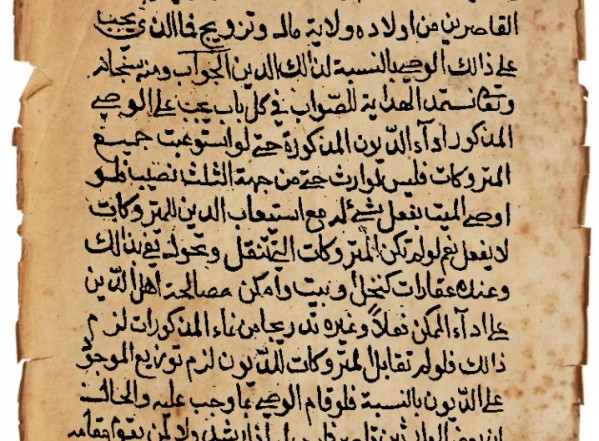 القاصرين من اولاده ولاية مال وتزويج فما الذي يجب
على ذالك الوصي بالنسبة لذالك الدين الجواب ومنه سبحانه
وتعا نستمد الهداية للصواب في كل باب يجب على الوصي
المذكور ادآء الديون المذكورة حتى لو استوعبت جميع
المتروكات فليس للوارث حتى من جهة الثلث نصيب فلو
اوصى الميت بفعل شيء له مع استيعاب الدين للمتروكات
لا يفعل نعم لو لم تكن المتروكات التي تنقل وتحول تفي بذالك
وعنده عقارات كنخل وبيت وامكن مصالحة اهل الدين
على ادآء الممكن فعلاً وغيره تدريجا من نماء المذكورات لزم
ذالك فلو لم تقابل المتروكات للديون لزم توزيع الموجود
على الديون بالنسبة فلو قام الوصي بما وجب عليه والحال
قاصر